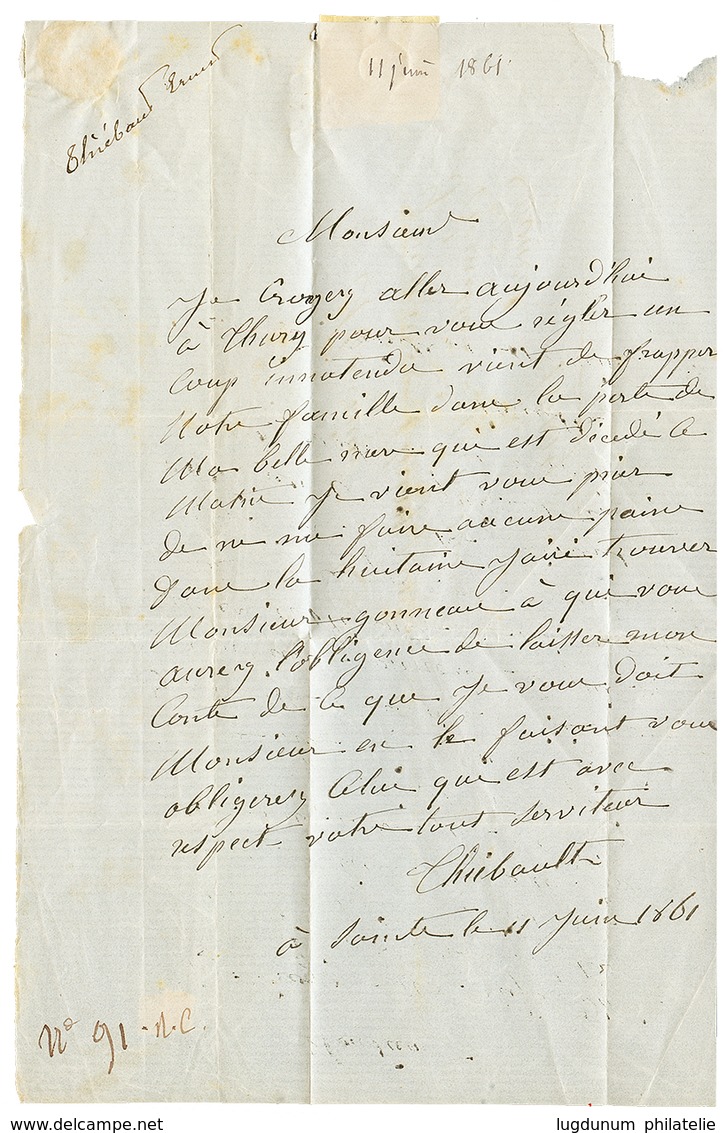 11 juin 1861
Thiébaud
Monsieur
Je Croyez aller aujourd'hui
à Thury pour vous régler un
Coup innatendu vient de frapper
Notre famille dans la perte de
Ma belle mere qui est décédé ce
Matin Je vient vous prier
de ne me faire aucune paine
dans la huitaine J'airé trouver
Monsieur gonneau à qui vous
aurez l'obligence de laisser mon
Conte de ce que Je vous doit
Monsieur en le faisant vous
obligerez Celui qui est avec
respect votre tout serviteur
Thiébault
à le 11 Juin 1861
N° 91. N.C.
www.delcampe.net
lugdunum philatelie